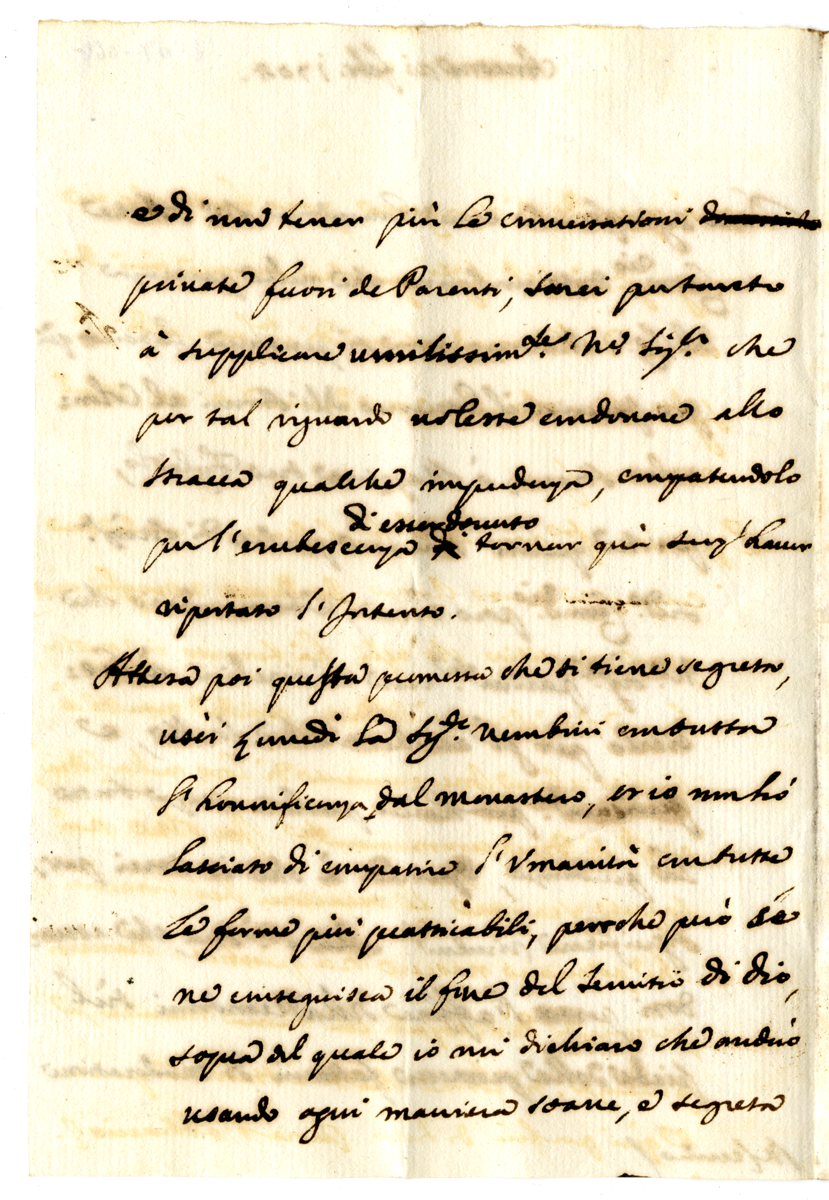 e di non tener più le conversationi
private fuori de Parenti, sarei per tanto
à supplicare umilissim.te N.ro Sig.re che
per tal riguardo volesse condonare allo
Stracca qualche impudenza, compatendolo
di esser dovuto
per l'erubescenza tornar quà senz'haver
riportato l'Intento.
Attesa poi questa promessa che si tiene segreta,
uscì Lunedì la Sig.ra Nembrini con tutta
l'honorificenza dal monastero, et io non hò
lasciato di compatire l'Umanità con tutte
le forme più pratticabili, perche però se
ne conseguisca il fine del servitio di dio,
sopra del quale io mi dichiaro che andrò
usando ogni maniera soave, e segreta